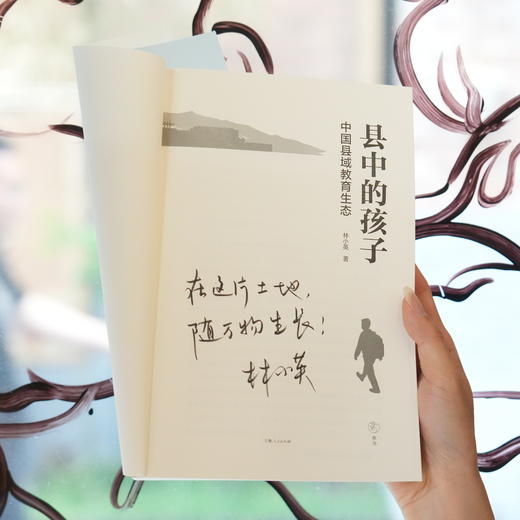 县中的孩子
中国县域教育生态
林小英 著
在这片土地，
随万物生长！
林小英
上海人民出版社